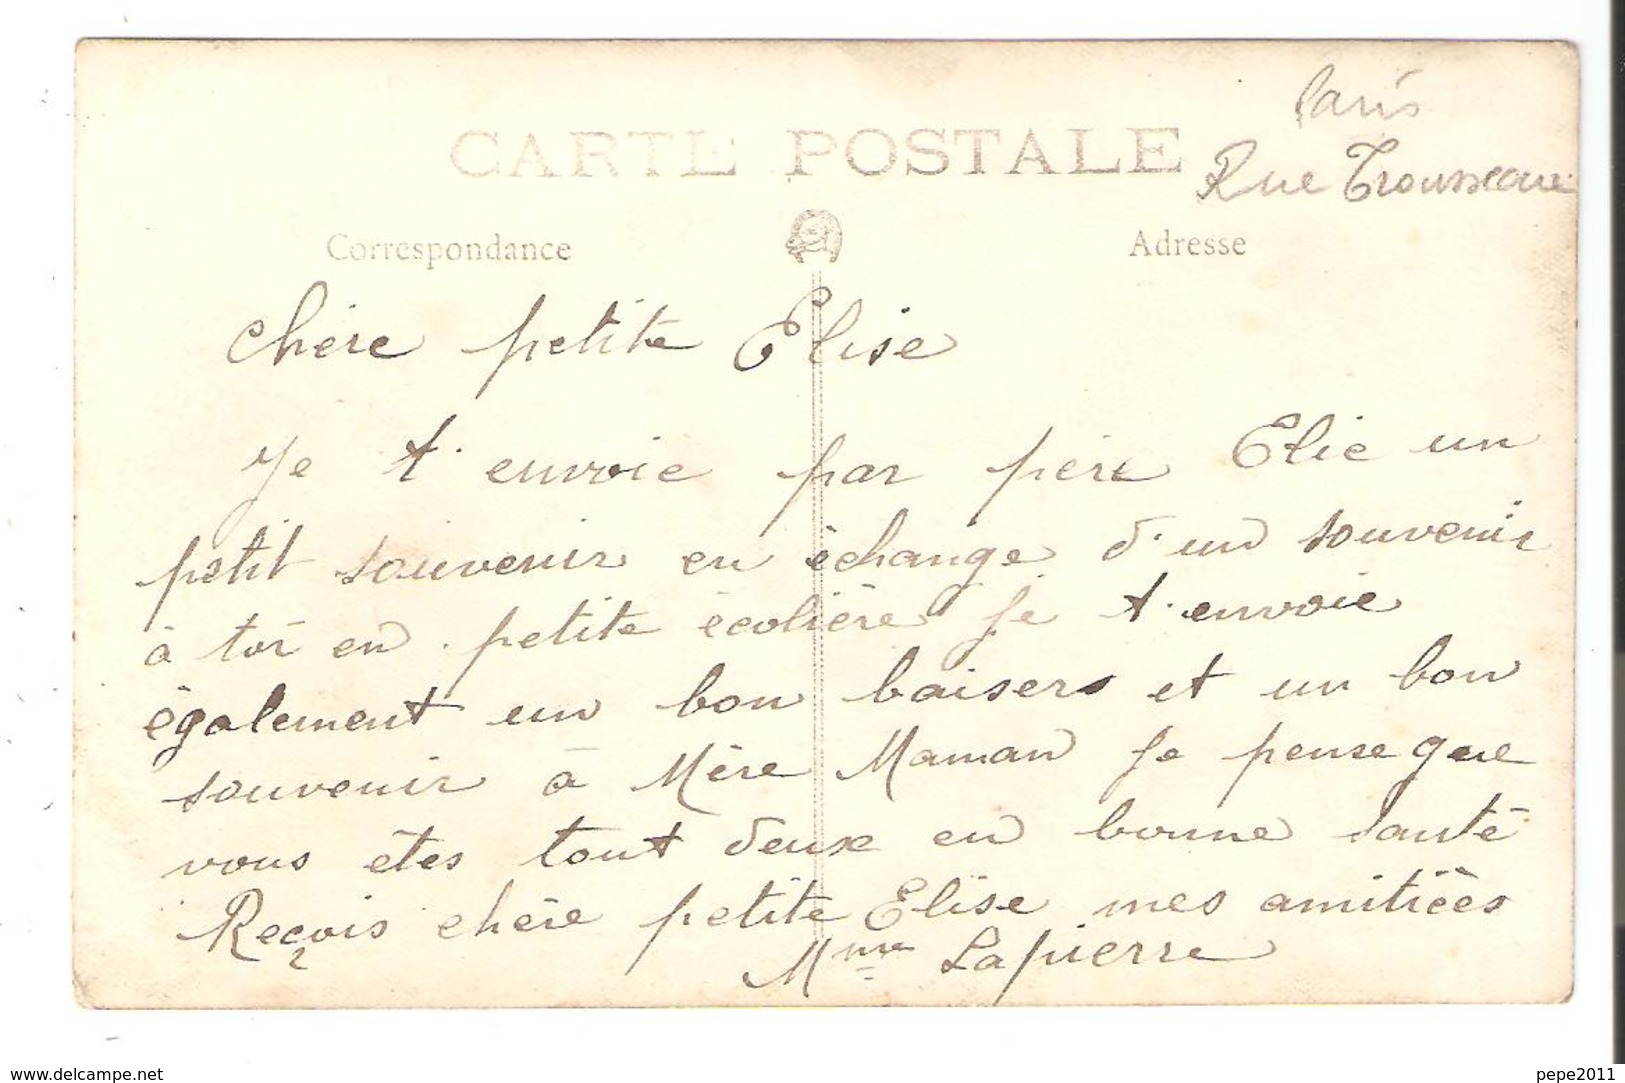 Paris
CARTE POSTALE
Rue Trousseau
Correspondance
Adresse
Chère petite Elise
Je t'envoie par père Elie un
petit souvenir en échange d'un souvenir
à toi en petite écolière Je t'envoie
également un bon baisers et un bon
souvenir à Mère Maman Je pense que
vous êtes tout deux en bonne santé
Reçois chère petite Elise mes amitiées
Mme Lapierre
www.delcampe.net
pepe2011